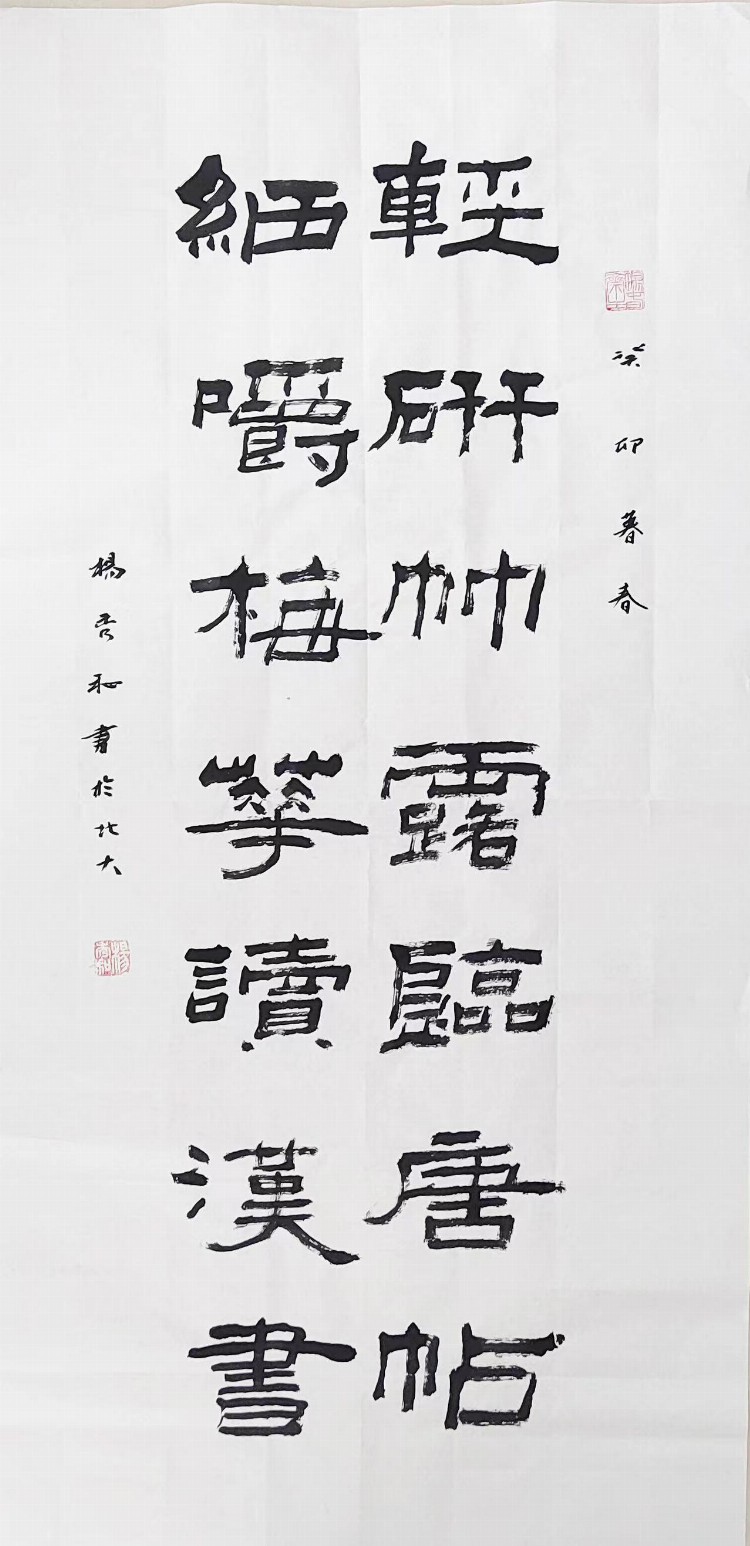 癸卯暮春
輕研竹露臨唐帖
細嚼梅華讀漢書
楊 和書於北大